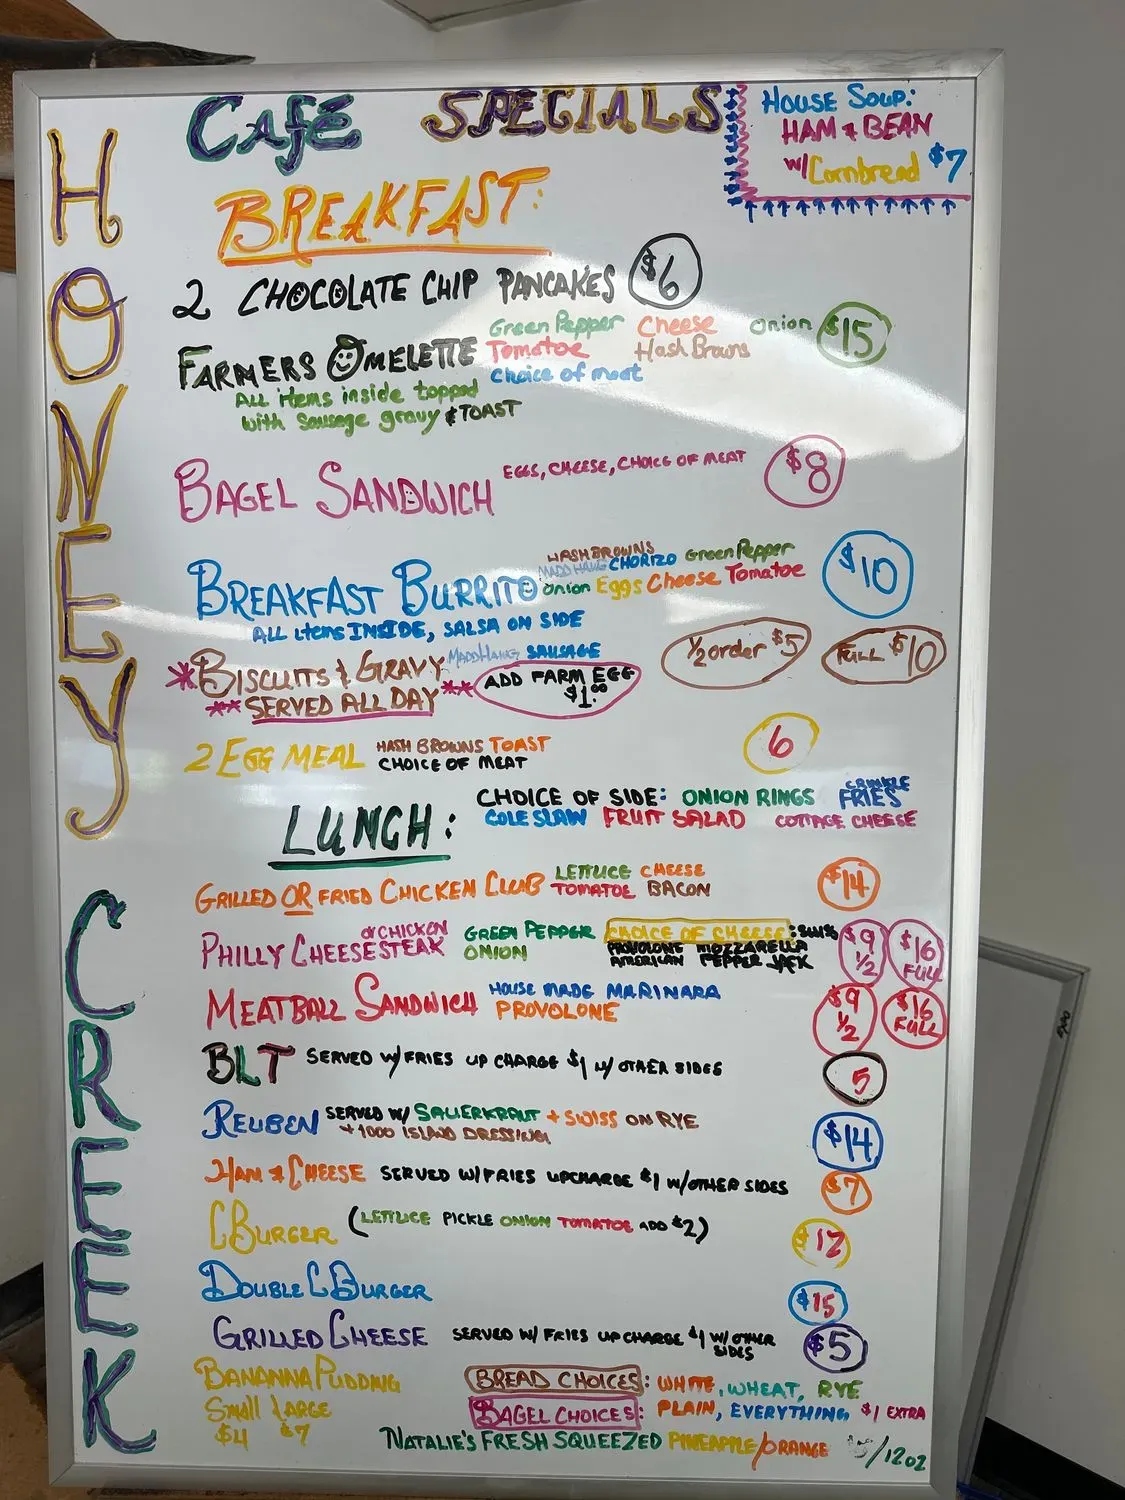 HONEY CREEK
Café SPECIALS
HOUSE SOUP:
HAM & BEAN
W/ Cornbread $7
BREAKFAST:
2 CHOCOLATE CHIP PANCAKES $6
FARMERS OMELETTE
Green Pepper Cheese onion $15
Tomatoe Hash Browns
Choice of meat
ALL items inside topped
with Sausage gravy & TOAST
BAGEL SANDWICH EGGS, CHEESE, CHOICE OF MEAT $8
BREAKFAST BURRITO
HASHBROWNS
MADD HAUG CHORIZO Green Pepper
onion Eggs Cheese Tomatoe $10
ALL items INSIDE, SALSA ON SIDE
*BISCUITS & GRAVY MADD HAUG SAUSAGE 1/2 order $5 FULL $10
** SERVED ALL DAY ** ADD FARM EGG
$1.00
2 EGG MEAL HASH BROWNS TOAST 6
CHOICE OF MEAT
LUNCH:
CHOICE OF SIDE: ONION RINGS CRINKLE FRIES
COLE SLAW FRUIT SALAD COTTAGE CHEESE
GRILLED OR FRIED CHICKEN CLUB LETTUCE CHEESE $14
TOMATOE BACON
PHILLY CHEESESTEAK
or CHICKEN
GREEN PEPPER
ONION
CHOICE OF CHEESE: SWISS
PROVOLONE MOZZARELLA
AMERICAN PEPPER JACK
$9 1/2 $16 FULL
MEATBALL SANDWICH HOUSE MADE MARINARA $9 1/2 $16 FULL
PROVOLONE
BLT SERVED W/FRIES UP CHARGE $1 W/ OTHER SIDES 5
REUBEN SERVED W/ SAUERKRAUT + SWISS ON RYE $14
+ 1000 ISLAND DRESSING
HAM & CHEESE SERVED W/FRIES UPCHARGE $1 W/OTHER SIDES $7
CBURGER (LETTUCE PICKLE ONION TOMATOE ADD $2) $12
DOUBLE CBURGER $15
GRILLED CHEESE SERVED W/ FRIES UP CHARGE $1 W/ OTHER SIDES $5
BANANNA PUDDING
Small Large
$4 $7
BREAD CHOICES: WHITE, WHEAT, RYE
BAGEL CHOICES: PLAIN, EVERYTHING $1 EXTRA
NATALIE'S FRESH SQUEEZED PINEAPPLE/ORANGE /12oz